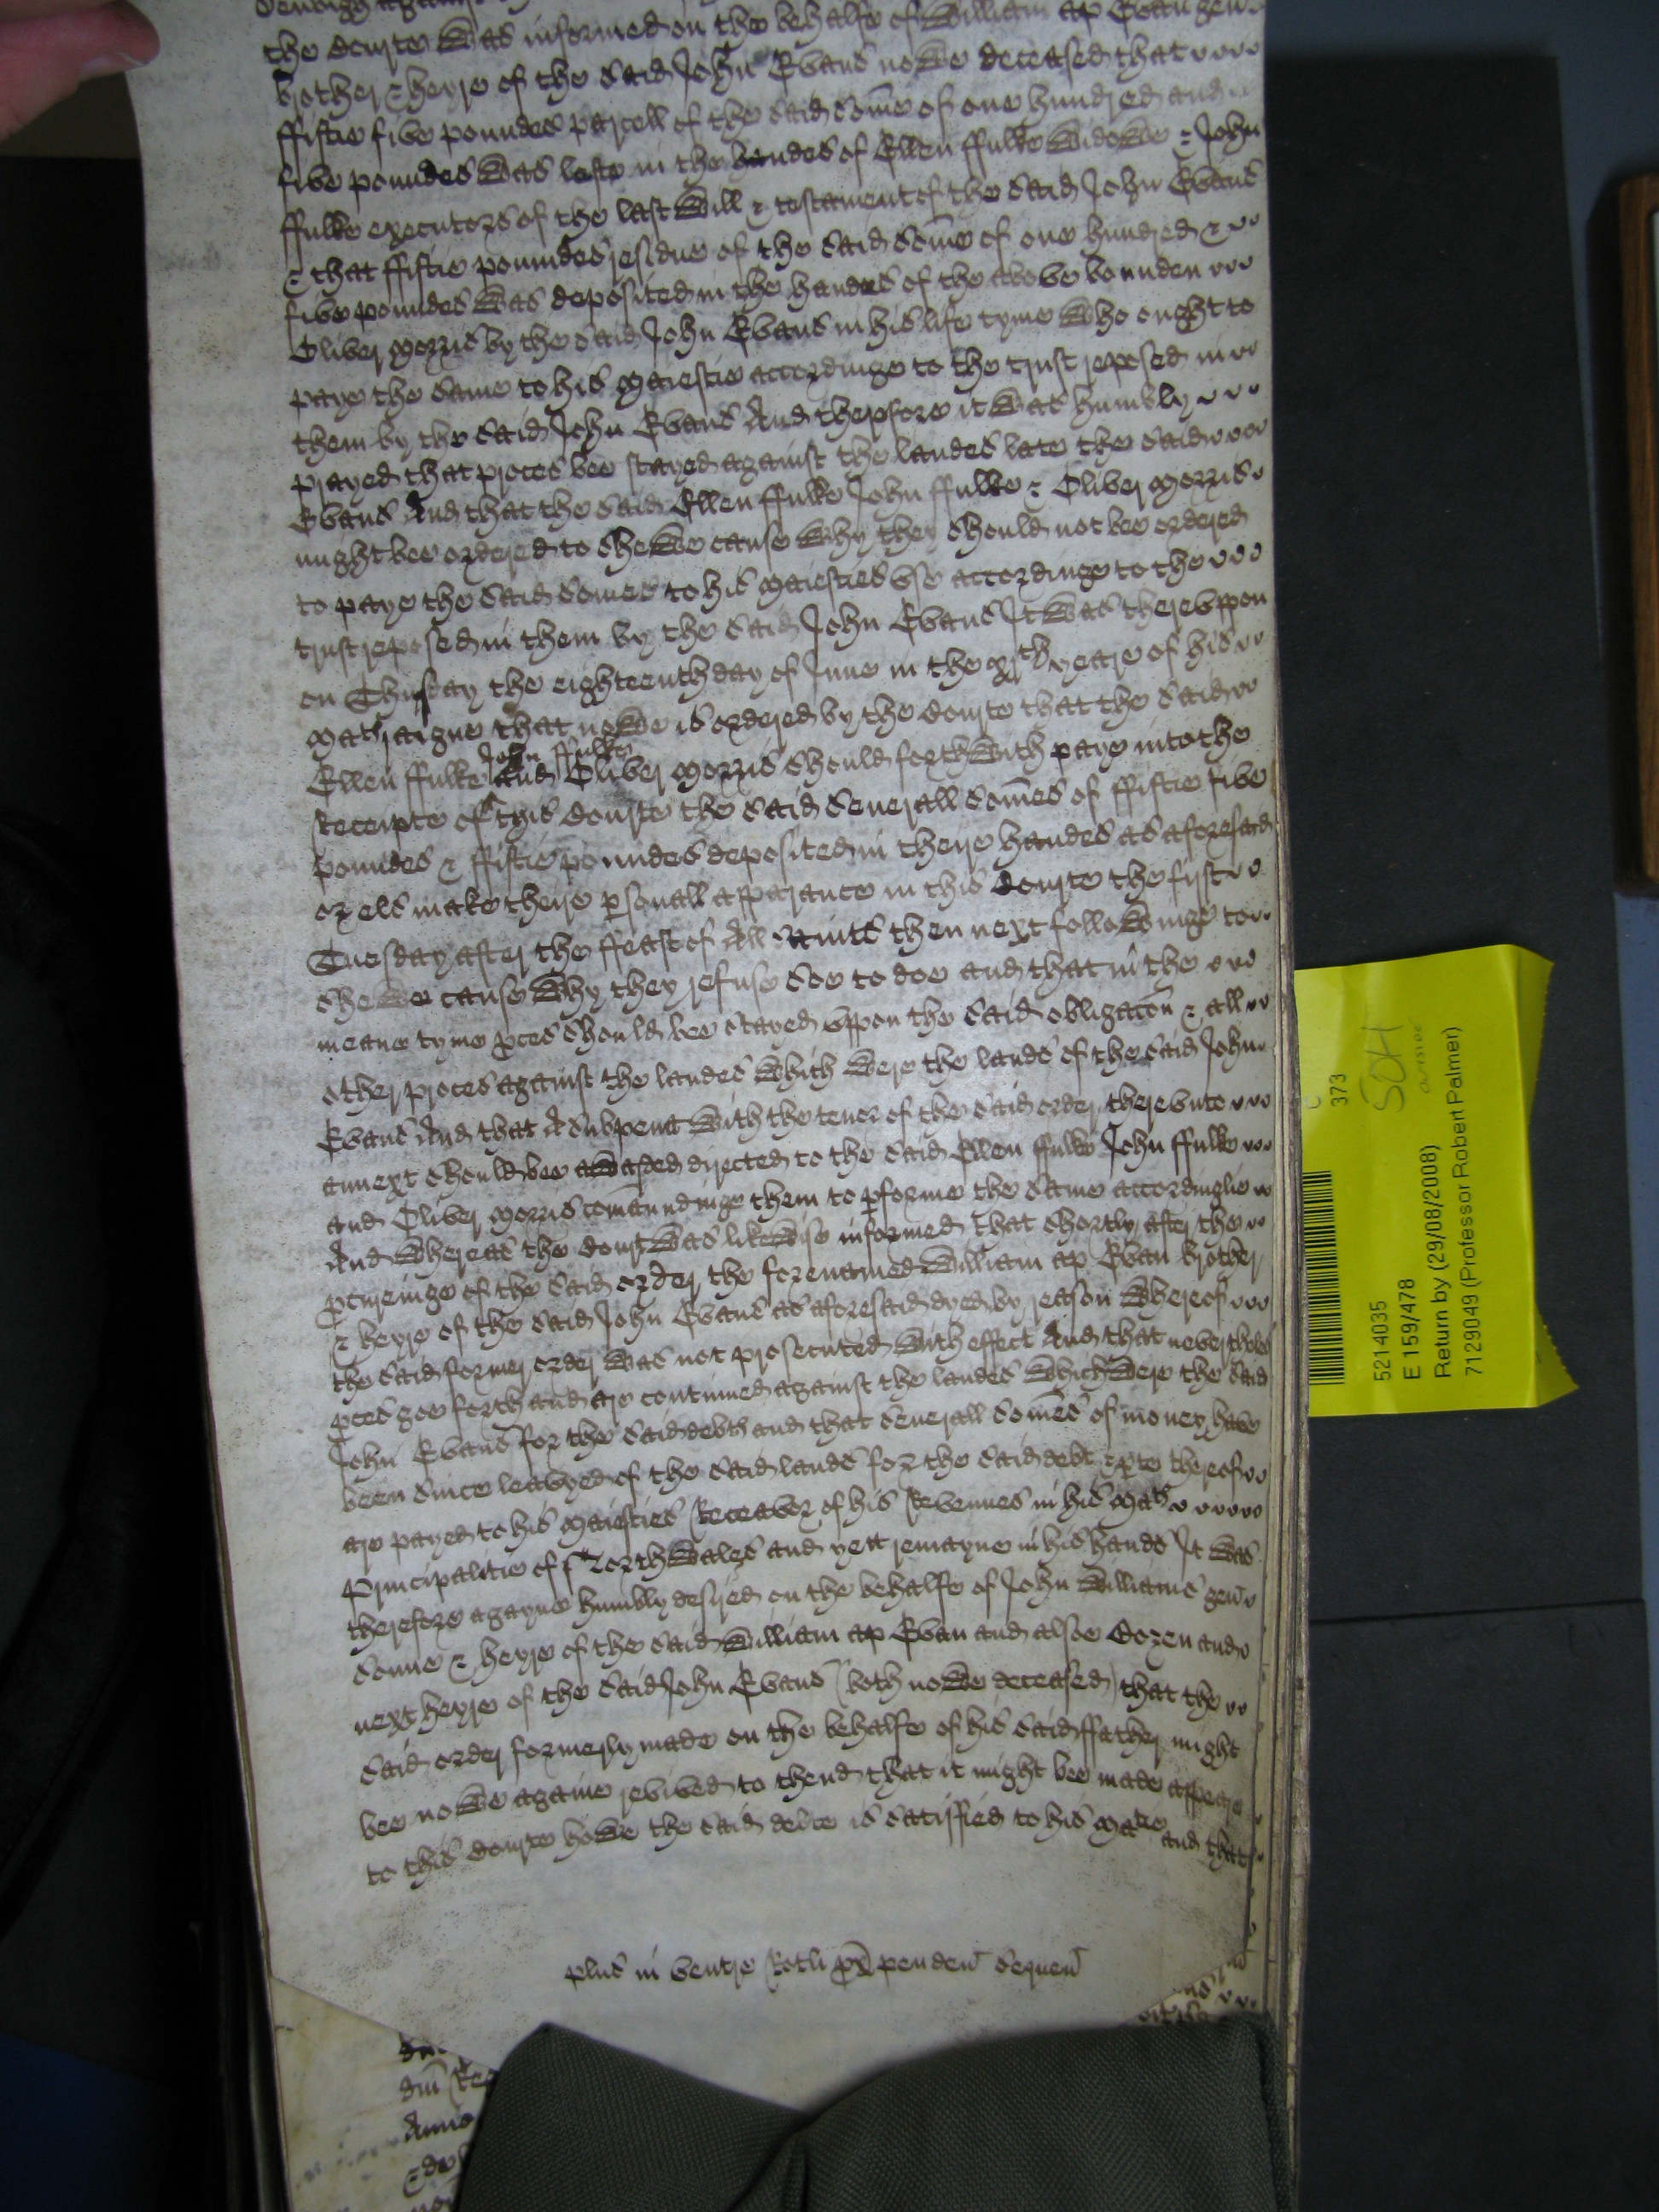 the Courte was informed on the behalfe of William ap Evan gen
brother & heyre of the said John Evans nowe deceased that
ffiftie five poundes parcell of the said some of one hundred and
five poundes was lefte in the handes of Ellen ffulke widowe & John
ffulke executors of the last will & testament of the said John Evans
& that ffiftie poundes residue of the said some of one hundred &
five poundes was deposited in the handes of the above bounden
Oliver Morris by the said John Evans in his life tyme who ought to
paye the same to his Maiestie accordinge to the trust reposed in
them by the said John Evans And therefore it was humbly
prayed that proces bee stayed against the landes late the said
Evans And that the said Ellen ffulke John ffulke & Oliver Morris
might bee ordered to shewe cause why they should not bee ordered
to paye the said somes to his Maiesties use accordinge to the
trust reposed in them by the said John Evans It was thereuppon
on Thursday the eighteenth day of June in the xjth yeare of his
Mats raigne that nowe is ordered by the Courte that the said
Ellen ffulke John ffulke And Oliver Morris should forthwith paye into the
Receipte of this Courte the said severall somes of ffiftie five
poundes & ffiftie poundes deposited in theire handes as aforesaid
or els make theire psonall apparance in this Courte the first
Tuesday after the ffeast of All Saints then next followinge to
shewe cause why they refuse soe to doe and that in the
meane tyme pces should bee stayed uppon the said obligacon & all
other proces against the landes which were the lands of the said John
Evans And that A subpena with the tenor of the said order thereunto
annext should bee awarded directed to the said Ellen ffulke John ffulke
and Oliver Morris comaundinge them to pforme the same accordinglie
And whereas the Court was likewise informed that shortly after the
pcureinge of the said order the forenamed William ap Evan brother
& heyre of the said John Evans as aforesaid dyed by reason whereof
the said former order was not prosecuted with effect And that neverthels
pces goe forth and are continued against the landes which were the said
John Evans for the said debt and that severall somes of money have
been since leavyed of the said lands for the said debt & pte thereof
are payed to his Maiesties Receavor of his Revennues in his Mats
Principalitie of Northwales and yett remayne in his hands It was
therefore agayne humbly desyred on the behalfe of John Williams gen
sonne & heyre of the said William ap Evan and alsoe Cozen and
next heyre of the said John Evans (both nowe deceased) that the
said order formerly made on the behalfe of his said ffather might
bee nowe againe revived to thend that it might bee made appeare
to this Courte howe the said debte is satisfied to his Matie and that
plus in ventre Rotli px penden sequen
C
373
SOH
5214035
E 159/478
Return by (29/08/2008)
7129049 (Professor Robert Palmer)